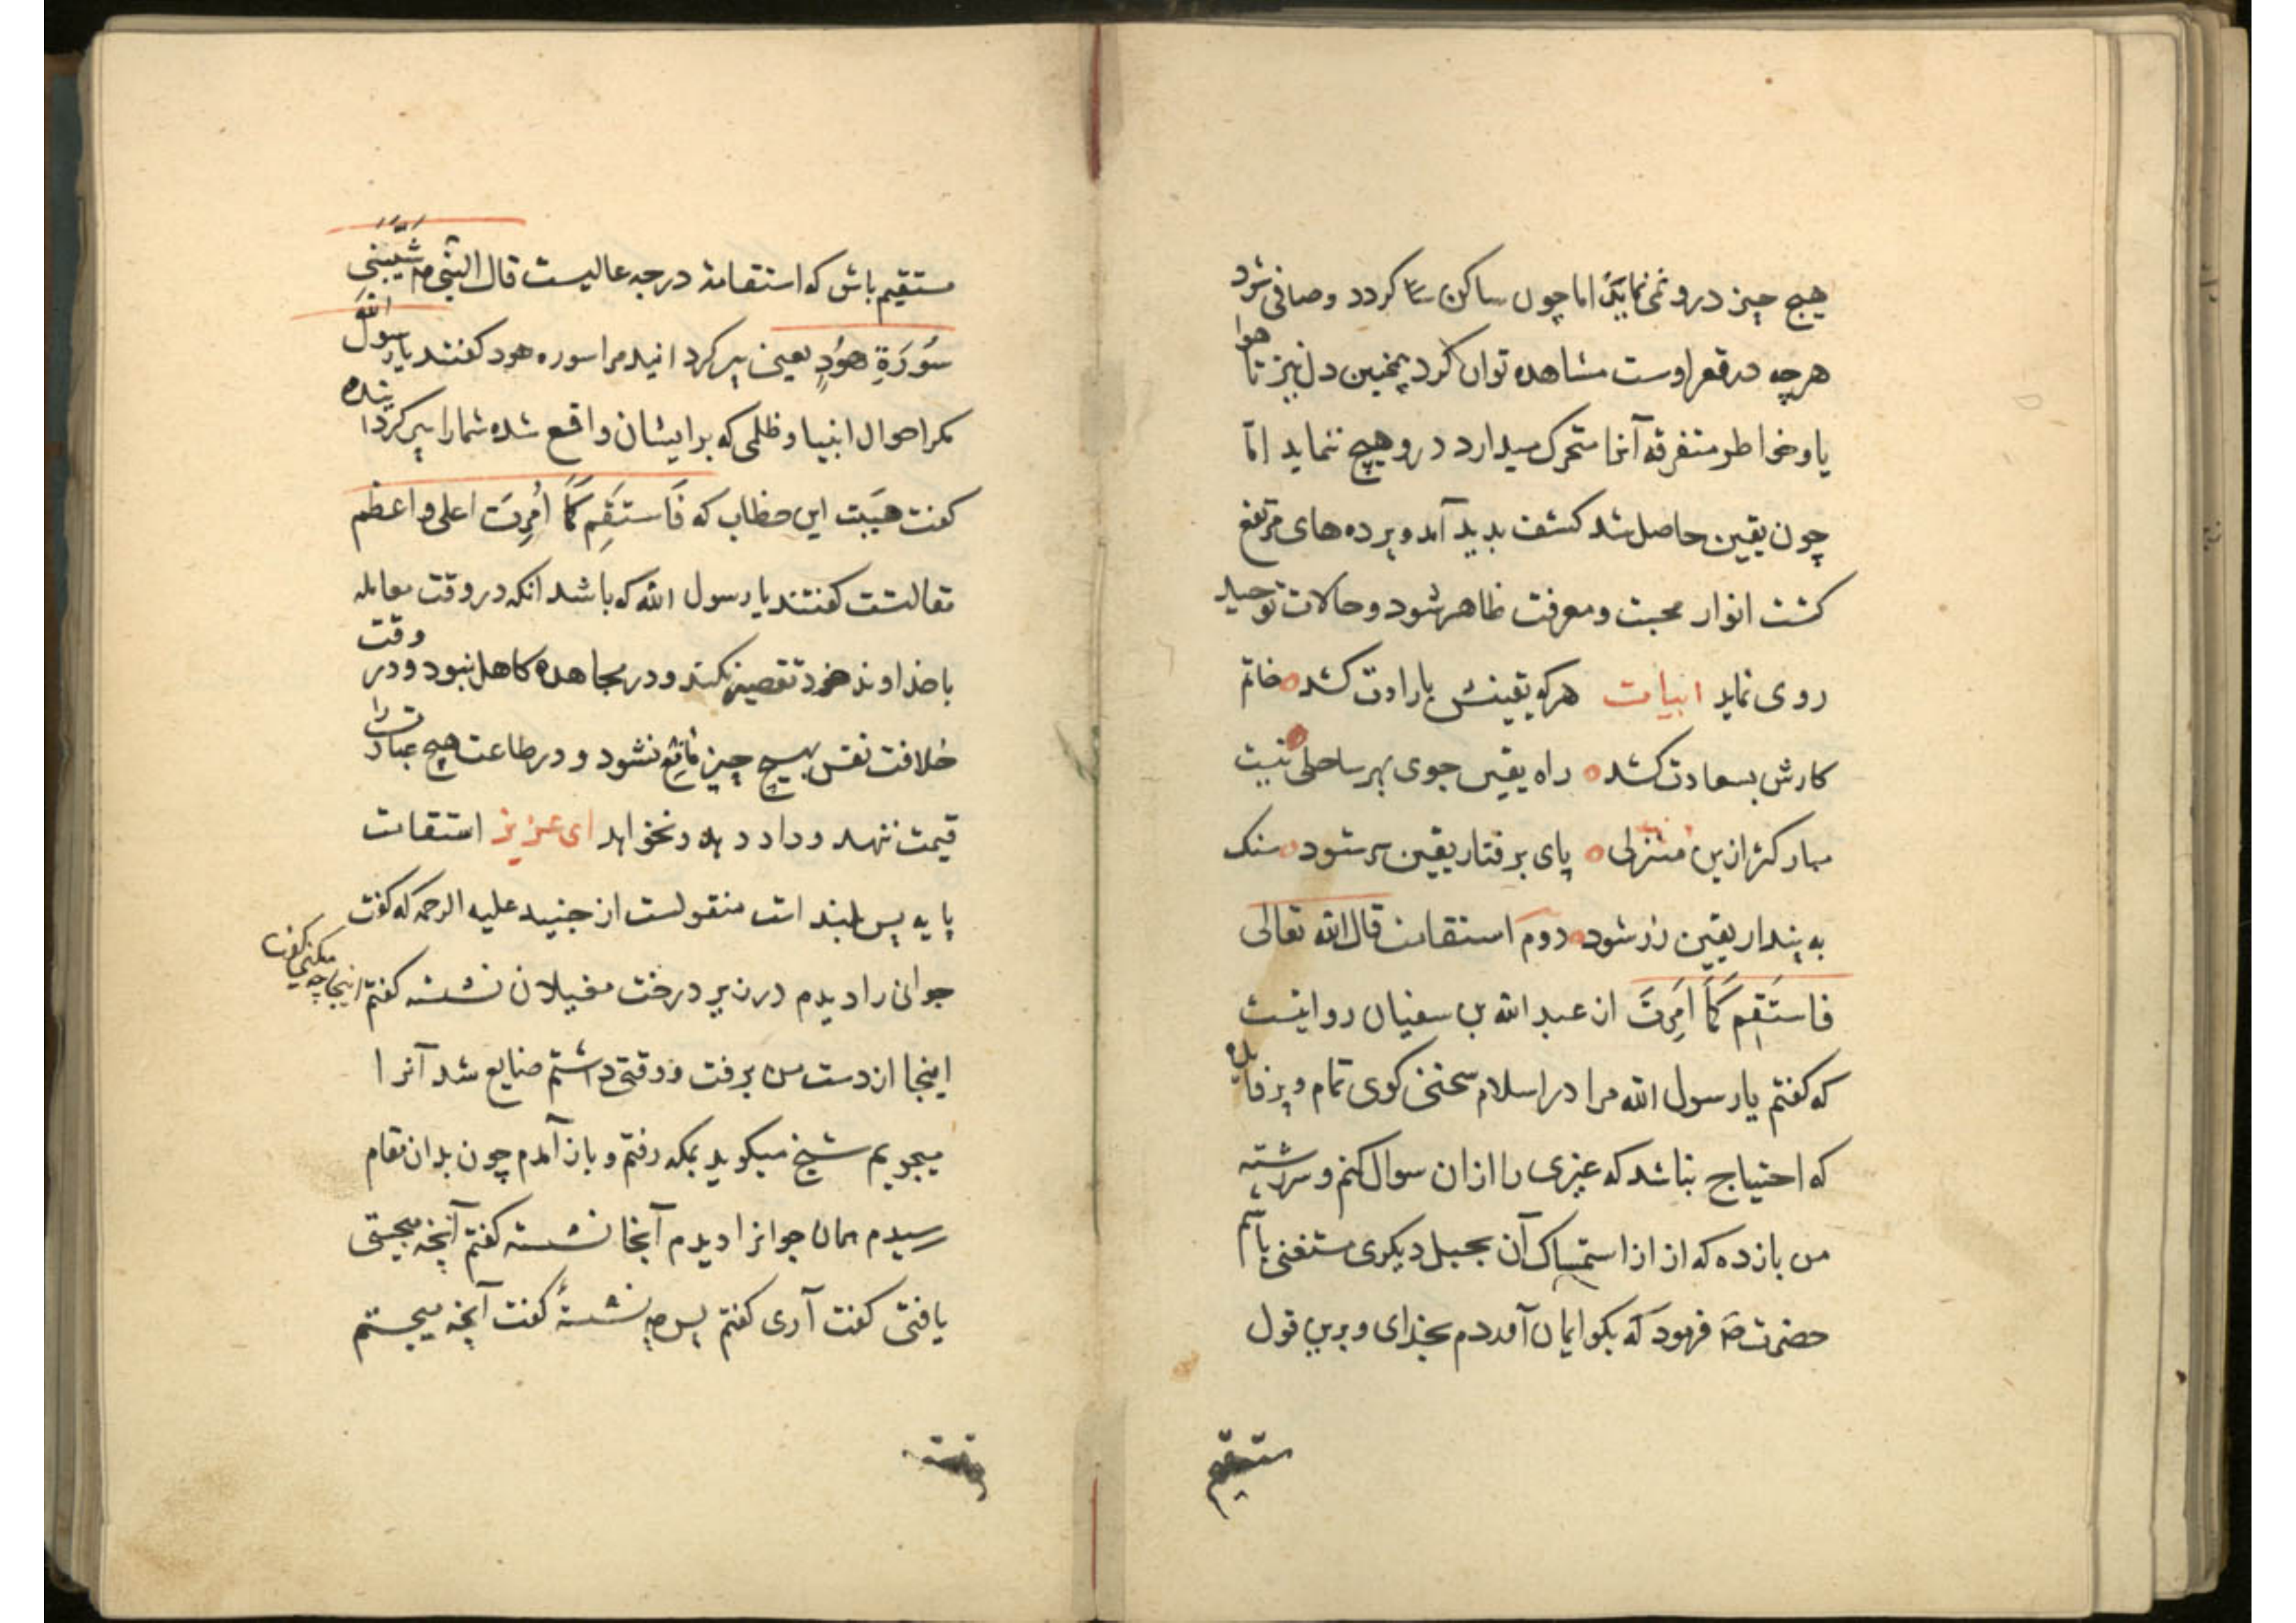 هیچ چیز درو نمی نماید اما چون ساکن کردد وصافی شود
هرچه در قعر اوست مشاهده توان کرد همچنین دل نیز تا هوا
یا وخواطر متفرقه آنرا متحرک میدارد درو هیچ ننماید امّا
چون یقین حاصل شد کشف بدید آمد وپرده های مرتفع
کشت انوار محبت ومعرفت ظاهر شود وحالات توحید
روی نماید ابیات هرکه یقینش بارادت کشد خاتم
کارش بسعادت کشد راه یقین جوی بهر ساحلی نیست
مبارکتر ازین منزلی پای برفتار یقین سر شود سنک
به پندار یقین زر شود دوم استقامت قال الله تعالی
فاستَقِم کَمَا اُمِرتَ از عبد الله بن سفیان روایتست
که کفتم یا رسول الله مرا در اسلام سخنی کوی تمام وپر فایده
که احتیاج نباشد که غیری را ازان سوال کنم وسررشته
من بازده که از استمساک آن بحبل دیکری مستغنی باشم
حضرت صَ فرمود که بکو ایمان آوردم بخدای وبرین قول
مستقیم
مستقیم باش که استقامة درجه عالیست قال النبی م شَیَّبَتنی
سُورَةِ هُودٍ یعنی پیر کردانید مرا سوره هود کفتند یا رسول الله
مکر احوال انبیا وظلمی که بر ایشان واقع شده شمارا پیر کردانیده
کفت هیبت این خطاب که فَاستَقِم کَمَا اُمِرتَ اعلی واعظم
مقالتست کفتند یا رسول الله که باشد انکه در وقت معامله
با خداوند خود تقصیر نکند ودر مجاهده کاهل نبود ودر وقت
خلافت نفس بهیچ چیز مانع نشود ودر طاعت هیچ عبادت را
قیمت ننهد وداد دهد ونخواهد ای عزیز استقامت
پایه پس بلند است منقولست از جنید علیه الرحمه که کفت
جوانی را دیدم در زیر درخت مغیلان نشسته کفتم اینجا چه میکنی کفت
اینجا از دست من برفت ووقتی داشتم ضایع شد آنرا
میجویم شیخ میکوید بمکه رفتم وباز آمدم چون بدان مقام
رسیدم همان جوانرا دیدم آنجا نشسته کفتم آنچه میجستی
یافتی کفت آری کفتم پس چه نشستهٔ کفت آنچه میجستم